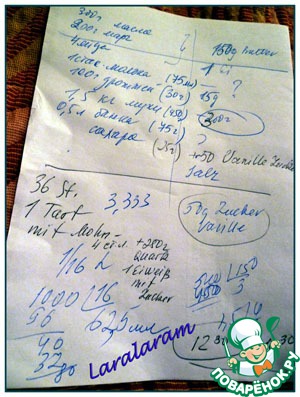 300г масла
200г марг
4 яйца
1 стак молока (75мл)
100г дрожжей (30г)
1,5 кг муки (450)
0,5л банка (75г)
сахара (25г)
150g Butter
1
?
15g
?
200г
?
+50 Vanille Zucker
Salz
36 St.
3,333
1 Tart
mit Mohn-
4 ст.л +250g
Quark
1 Eiweiß
mit
Zucker
50g Zucker
Vanille
1/16 L
1000 16
96 62,5 мл
40
32
80
150
450 3
Laralaram
ПОВАРЁНОК.РУ